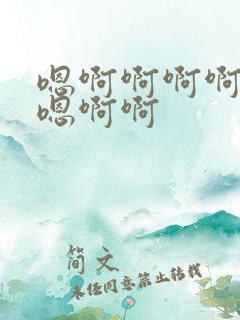 嗯啊啊啊啊
嗯啊啊
简文
未经同意禁止转载